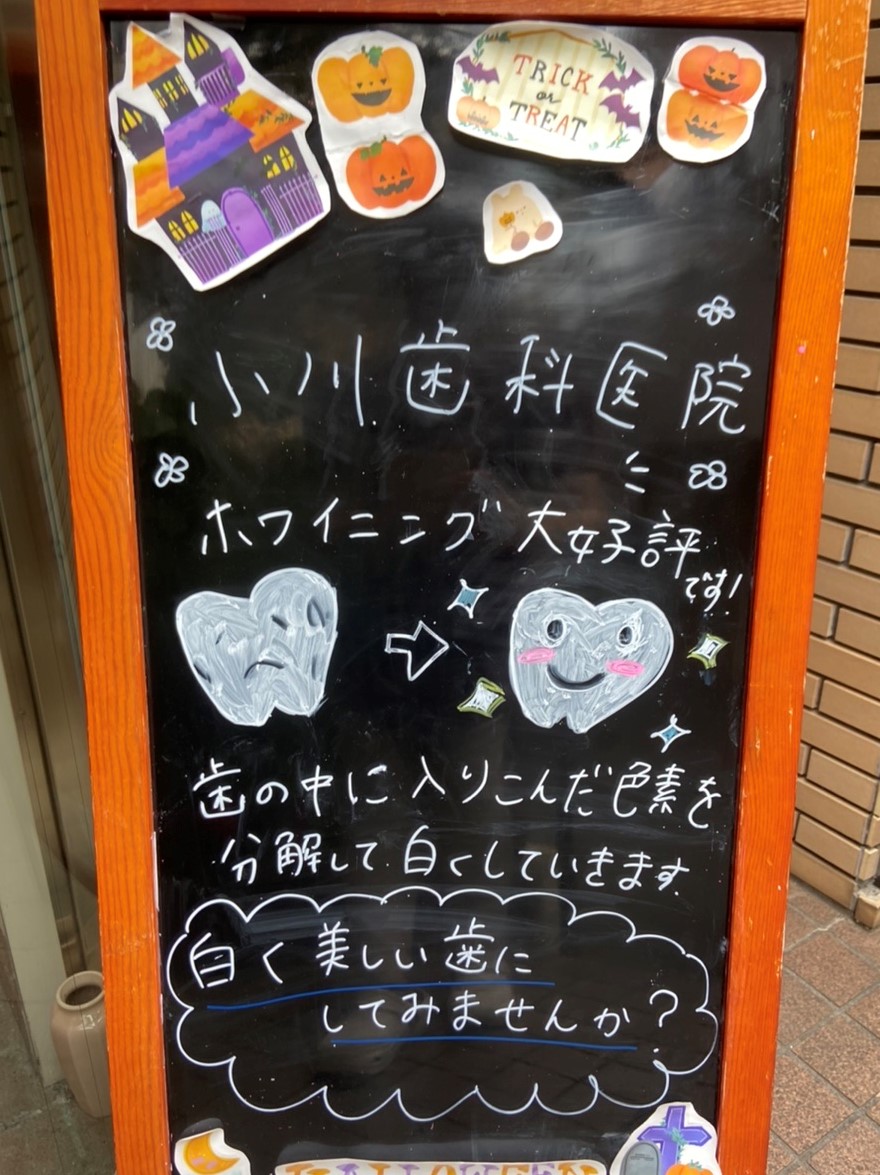 TRICK
or
TREAT
小川歯科医院
ホワイニング 大好評
です!
歯の中に入りこんだ色素を
分解して白くしていきます
白く美しい歯に
してみませんか?
HALLOWEEN